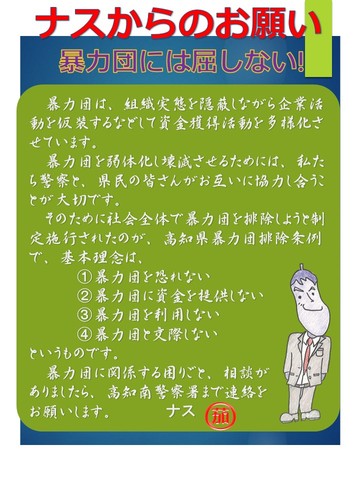 ナスからのお願い
暴力団には屈しない!
暴力団は、組織実態を隠蔽しながら企業活
動を仮装するなどして資金獲得活動を多様化さ
せています。
暴力団を弱体化し壊滅させるためには、私た
ち警察と、県民の皆さんがお互いに協力し合うこ
とが大切です。
そのために社会全体で暴力団を排除しようと制
定施行されたのが、高知県暴力団排除条例
で、基本理念は、
①暴力団を恐れない
②暴力団に資金を提供しない
③暴力団を利用しない
④暴力団と交際しない
というものです。
暴力団に関係する困りごと、相談が
ありましたら、高知南警察署まで連絡を
お願いします。 ナス ㊞茄